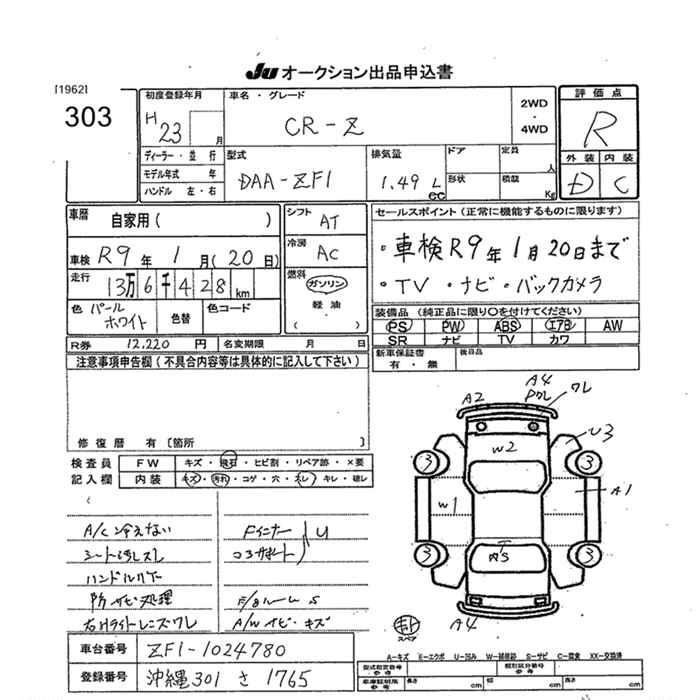 JU オークション出品申込書
[1962]
303
初度登録年月
H 23 月
車名・グレード
CR-Z
2WD
・
4WD
評価点
R
ディーラー・並行
モデル年式 年
ハンドル 左・右
型式
DAA-ZF1
排気量
1.49 L
cc
ドア
形状
定員 人
積載 Kg
外装 内装
D C
車暦
自家用( )
シフト AT
車検 R9年 1月(20日)
冷房 AC
走行
13万6千428km
燃料
ガソリン
軽油
( )
色 パールホワイト
色替
色コード
セールスポイント(正常に機能するものに限ります)
・車検R9年1月20日まで
・TV ・ナビ ・バックカメラ
装備品(純正品に限り○を付けてください)
PS PW ABS エアB AW
SR ナビ TV カワ
R券 12,220 円
名変期限 月 日
新車保証書
有・無
後日品
注意事項申告欄(不具合内容等は具体的に記入して下さい)
修復暦 有〔箇所 〕
検査員
記入欄
FW キズ・飛石・ヒビ割・リペア跡・×要
内装 キズ・汚れ・コゲ・穴・スレ・キレ・破レ
A/C冷えない
シート汚レスレ
ハンドルリム
防サビ処理
右Hライトレンズワレ
Fインナー
コアサポート
U
F/Bルーム S
A/Wサビ・キズ
A2
A4
ワレ
U3
W2
3
3
W1
A1
3
3
A4
スペア
A-キズ E-エクボ U-凹み W-補修跡 S-サビ C-腐食 XX-交換済
車台番号 ZF1-1024780
登録番号 沖縄 301 さ 1765
型式指定番号
参考
類別区分番号
参考
車庫証明用
参考
長さ cm
幅 cm
高さ cm